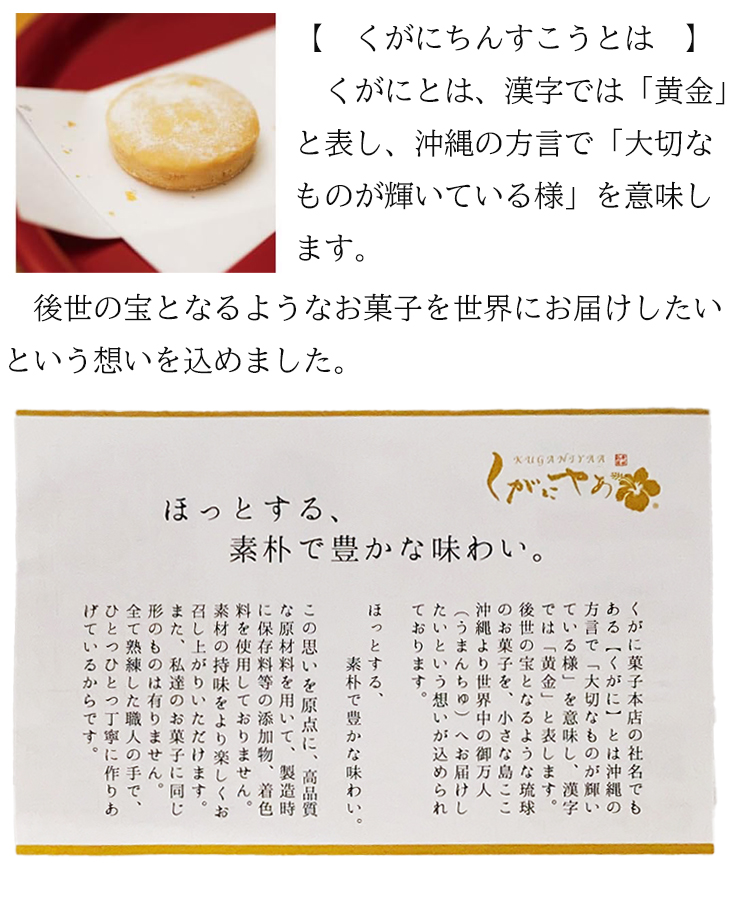 【　くがにちんすこうとは　】
　くがにとは、漢字では「黄金」
と表し、沖縄の方言で「大切な
ものが輝いている様」を意味し
ます。
　後世の宝となるようなお菓子を世界にお届けしたい
という想いを込めました。
KUGANIYAA
くがにやあ
ほっとする、
素朴で豊かな味わい。
くがに菓子本店の社名でも
ある【くがに】とは沖縄の
方言で「大切なものが輝い
ている様」を意味し、漢字
では「黄金」と表します。
後世の宝となるような琉球
のお菓子を、小さな島ここ
沖縄より世界中の御万人
（うまんちゅ）へお届けし
たいという想いが込められ
ております。
ほっとする、
素朴で豊かな味わい。
この思いを原点に、高品質
な原材料を用いて、製造時
に保存料等の添加物、着色
料を使用しておりません。
素材の持味をより楽しくお
召し上がりいただけます。
また、私達のお菓子に同じ
形のものは有りません。
全て熟練した職人の手で、
ひとつひとつ丁寧に作りあ
げているからです。